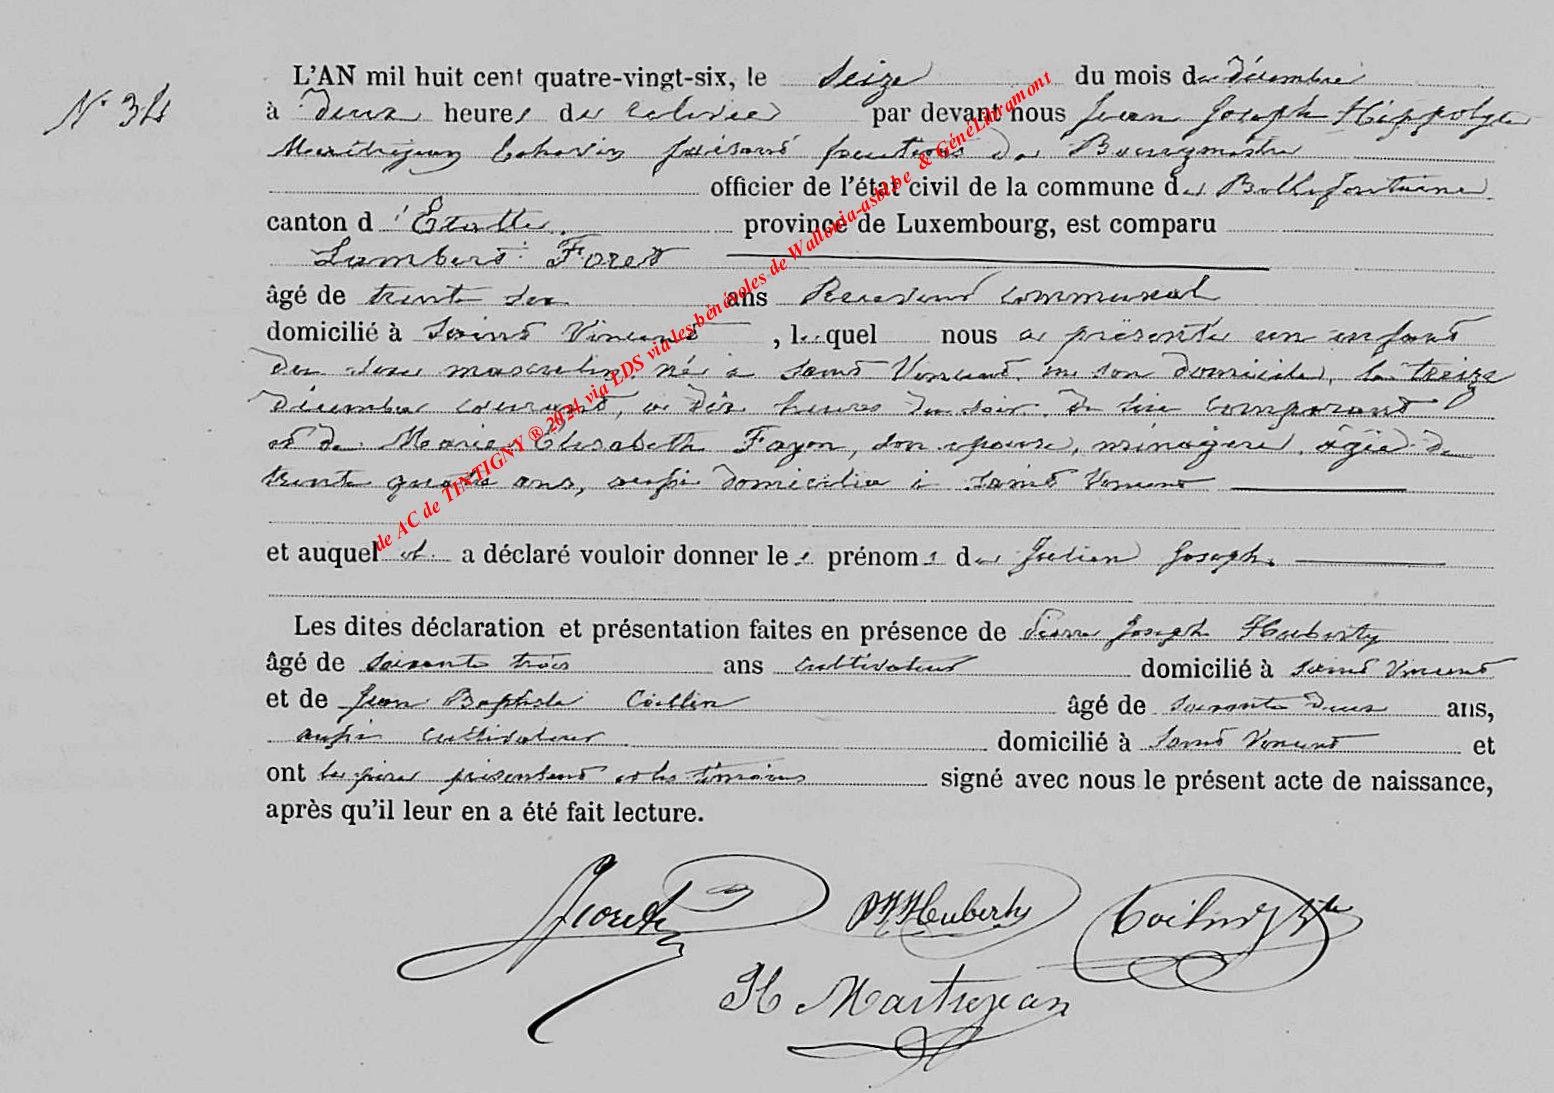 N° 34
L'AN mil huit cent quatre-vingt-six, le seize du mois de décembre
à deux heures de relevée par devant nous Jean Joseph Hippolyte
Martrejean Echevin faisant fonctions de Bourgmestre
officier de l'état civil de la commune de Bellefontaine
canton d'Etalle. province de Luxembourg, est comparu
Lambert Foret
âgé de trente six ans Receveur communal
domicilié à Saint Vincent, lequel nous a présenté un enfant
du sexe masculin, né à Saint Vincent, en son domicile, le treize
décembre courant, à dix heures du soir, de lui comparant
et de Marie Elisabeth Fayon, son épouse, ménagère, âgée de
trente quatre ans, aussi domiciliée à Saint Vincent
et auquel il a déclaré vouloir donner les prénoms de Julien Joseph.
Les dites déclaration et présentation faites en présence de Pierre Joseph Huberty
âgé de soixante trois ans cultivateur domicilié à Saint Vincent
et de Jean Baptiste Collin âgé de soixante deux ans,
aussi cultivateur domicilié à Saint Vincent et
ont les père présentant et les témoins signé avec nous le présent acte de naissance,
après qu'il leur en a été fait lecture.
PJ Huberty
H Martrejean
de AC de TINTIGNY ® 2024 via LDS via les bénévoles de Wallonia-asbl.be & GénéLibramont